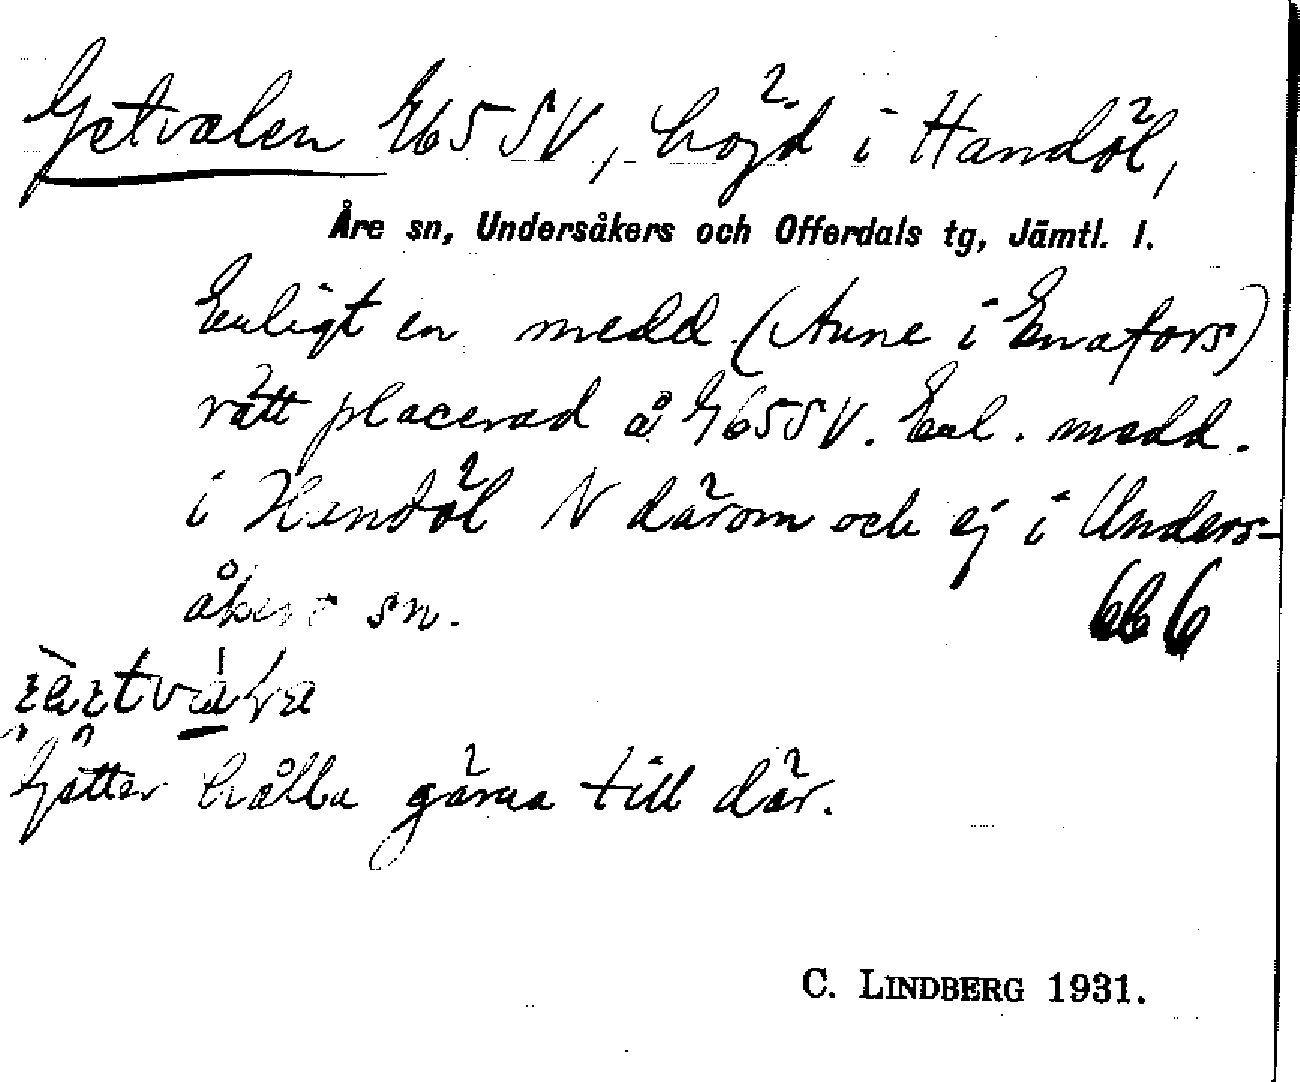 Getvalen G65SV, höjd i Handöl,
Åre sn, Undersåkers och Offerdals tg, Jämtl. l.
Enligt en medd. (Aune i Enafors)
rätt placerad å G65SV. Enl. medd.
i Handöl N därom och ej i Unders-
åkers sn.
666
Getter hålla gärna till där.
C. LINDBERG 1931.